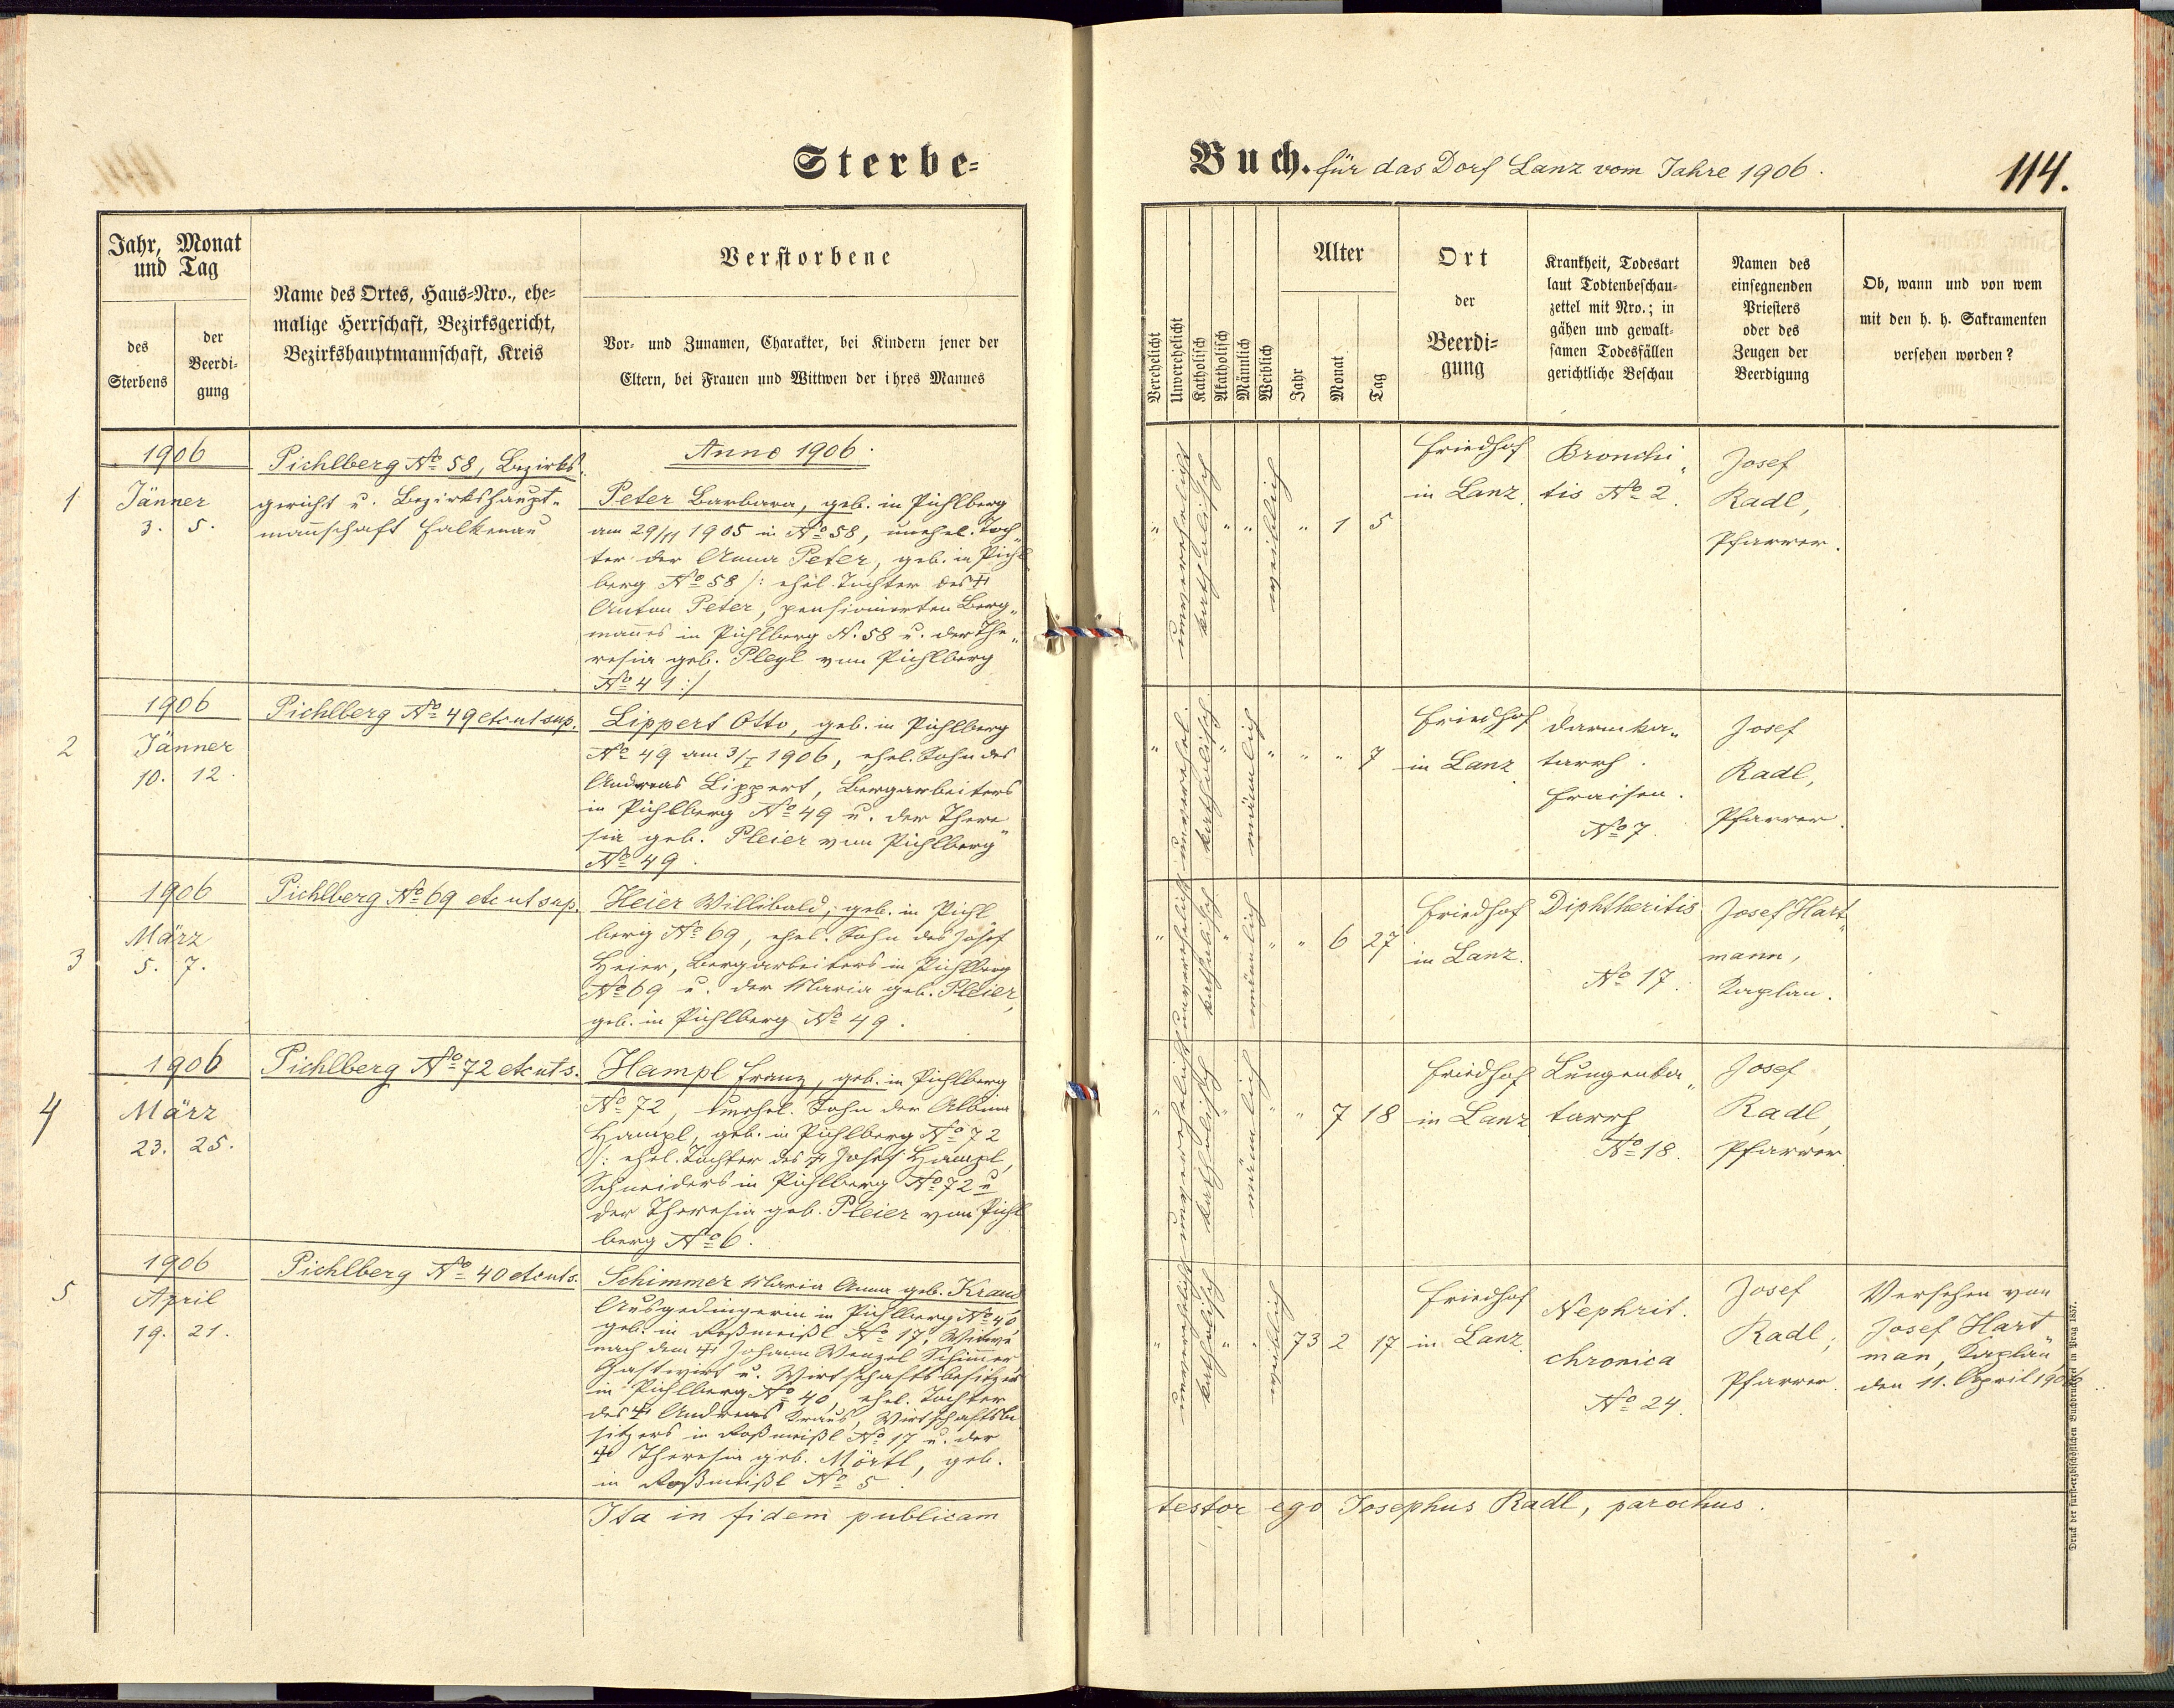 Sterbe-
Buch. für das Dorf Lanz vom Jahre 1906.
114.
Jahr, Monat
und Tag
des
Sterbens
der
Beerdi-
gung
Name des Ortes, Haus-Nro., ehe-
malige Herrschaft, Bezirksgericht,
Bezirkshauptmannschaft, Kreis
Verstorbene
Vor- und Zunamen, Charakter, bei Kindern jener der
Eltern, bei Frauen und Wittwen der ihres Mannes
Verehelicht
Unverehelicht
Katholisch
Akatholisch
Männlich
Weiblich
Alter
Jahr
Monat
Tag
Ort
der
Beerdi-
gung
Krankheit, Todesart
laut Todtenbeschau-
zettel mit Nro.; in
gähen und gewalt-
samen Todesfällen
gerichtliche Beschau
Namen des
einsegnenden
Priesters
oder des
Zeugen der
Beerdigung
Ob, wann und von wem
mit den h. h. Sakramenten
versehen worden?
1
1906
Jänner
3. 5.
Pichlberg No 58, Bezirks-
gericht u. Bezirkshaupt-
mannschaft Falkenau
Anno 1906.
Peter Barbara, geb. in Pichlberg
am 29/11 1905 in No 58, unehel. Toch-
ter der Anna Peter, geb. in Pichl
berg No 58 /: ehel. Tochter des †
Anton Peter, pensionierten Berg-
mannes in Pichlberg N. 58 u. der The-
resia geb. Pleyl von Pichlberg
No 41 :/
" unverehelicht katholisch " " weiblich " 1 5
Friedhof
in Lanz
Bronchi-
tis No 2.
Josef
Radl,
Pfarrer.
2
1906
Jänner
10. 12.
Pichlberg No 49 etc ut sup.
Lippert Otto, geb. in Pichlberg
No 49 am 3/I 1906, ehel. Sohn des
Andreas Lippert, Bergarbeiters
in Pichlberg No 49 u. der There-
sia geb. Pleier von Pichlberg
No 49.
" unverehel. katholisch " männlich " " " 7
Friedhof
in Lanz
Darmka-
tarrh.
Fraisen.
No 7.
Josef
Radl,
Pfarrer.
3
1906
März
5. 7.
Pichlberg No 69 etc ut sup.
Heier Willibald, geb. in Pichl
berg No 69, ehel. Sohn des Josef
Heier, Bergarbeiters in Pichlberg
No 69 u. der Maria geb. Pleier,
geb. in Pichlberg No 49.
" unverehelicht katholisch " männlich " " 6 27
Friedhof
in Lanz.
Diphtheritis
No 17.
Josef Hart-
mann,
Kaplan.
4
1906
März
23. 25.
Pichlberg No 72 etc ut s.
Hampl Franz, geb. in Pichlberg
No 72, unehel. Sohn der Albina
Hampl, geb. in Pichlberg No 72
/: ehel. Tochter des † Josef Hampl,
Schneiders in Pichlberg No 72 u
der Theresia geb. Pleier von Pichl
berg No 6.
" unverehelicht katholisch " männlich " " 7 18
Friedhof
in Lanz
Lungenka-
tarrh
No 18.
Josef
Radl,
Pfarrer
5
1906
April
19. 21.
Pichlberg No 40 etc ut s.
Schimmer Maria Anna geb. Kraus
Ausgedingerin in Pichlberg No 40
geb. in Roßmeißl No 17, Witwe
nach dem † Johann Wenzel Schimmer,
Gastwirt u. Wirtschaftsbesitzer
in Pichlberg No 40, ehel. Tochter
des † Andreas Kraus, Wirtschaftsbe
sitzers in Roßmeißl No 17 u. der
† Theresia geb. Mörtl, geb.
in Roßmeißl No 5.
" unverehelicht katholisch " " weiblich 73 2 17
Friedhof
in Lanz
Nephrit.
chronica
No 24.
Josef
Radl,
Pfarrer.
Versehen von
Josef Hart-
man, Kaplan
den 11. April 1906.
Ita in fidem publicam
testor ego Josephus Radl, parochus.
Druck der fürsterzbischöflichen Buchdruckerei in Prag 1857.